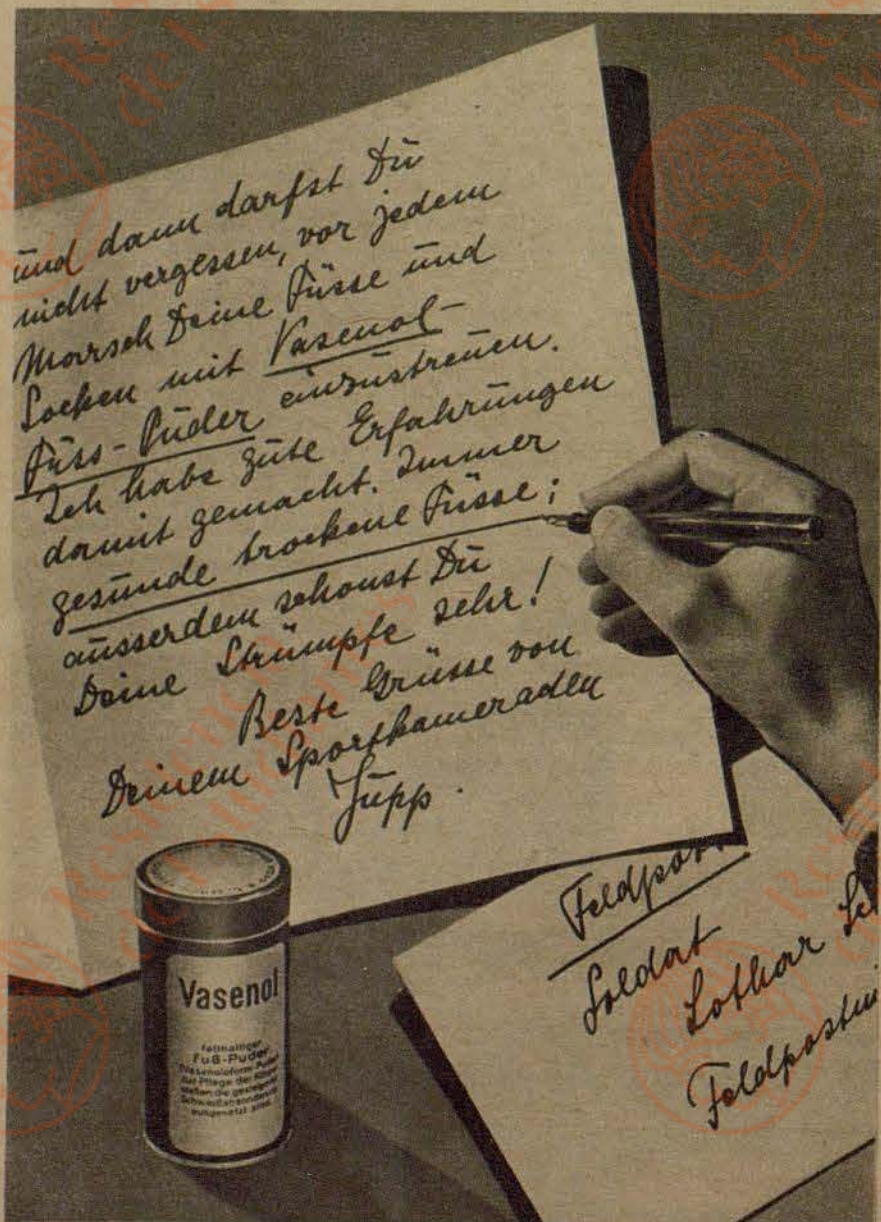 und dann darfst Du
nicht vergessen, vor jedem
Marsch Deine Füsse und
Socken mit Vasenol-
Fuss-Puder einzustreuen.
Ich habe gute Erfahrungen
damit gemacht. Immer
gesunde trockene Füsse;
ausserdem schonst Du
Deine Strümpfe sehr!
Beste Grüsse von
Deinem Sportkameraden
Jupp.
Vasenol
fetthaltiger
Fuß-Puder
zur Pflege der
ausgesetzt sind.
Feldpos
Soldat
Lothar
Feldpostnu